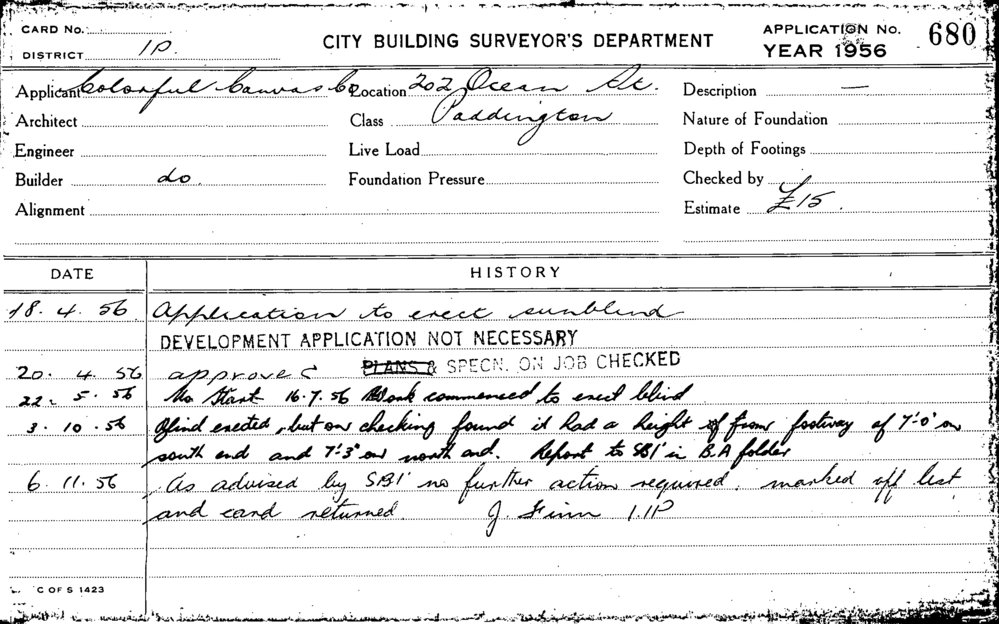 CARD No.
DISTRICT 1P.
CITY BUILDING SURVEYOR'S DEPARTMENT
APPLICATION No. 680
YEAR 1956
Applicant Colorful Canvas Co Location 202 Ocean St. Description —
Architect Class Paddington Nature of Foundation
Engineer Live Load Depth of Footings
Builder do. Foundation Pressure Checked by
Alignment Estimate £15.
DATE HISTORY
18. 4. 56 Application to erect sunblind
DEVELOPMENT APPLICATION NOT NECESSARY
20. 4. 56 approved PLANS & SPECN. ON JOB CHECKED
22. 5. 56 No Start 16.7.56 Work commenced to erect blind
3. 10. 56 Blind erected, but on checking found it had a height of from footway of 7'-0" on
south end and 7'-3" on north end. Report to SBI in B.A folder
6. 11. 56 As advised by SBI no further action required. marked off list
and card returned. J. Finn 1.1P
C OF S 1423